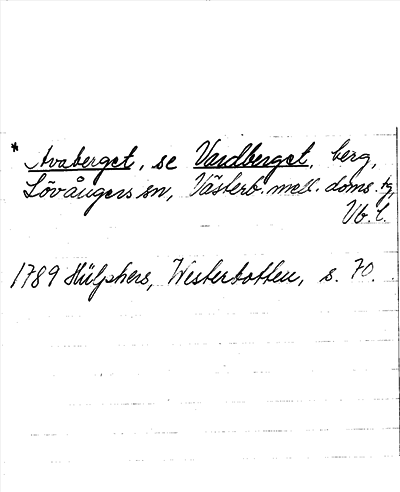 * Avaberget, se Vardberget, berg,
Lövångers sn, Västerb. mell. doms. tg,
Vb. l.
1789 Hülphers, Westerbotten, s. 70.